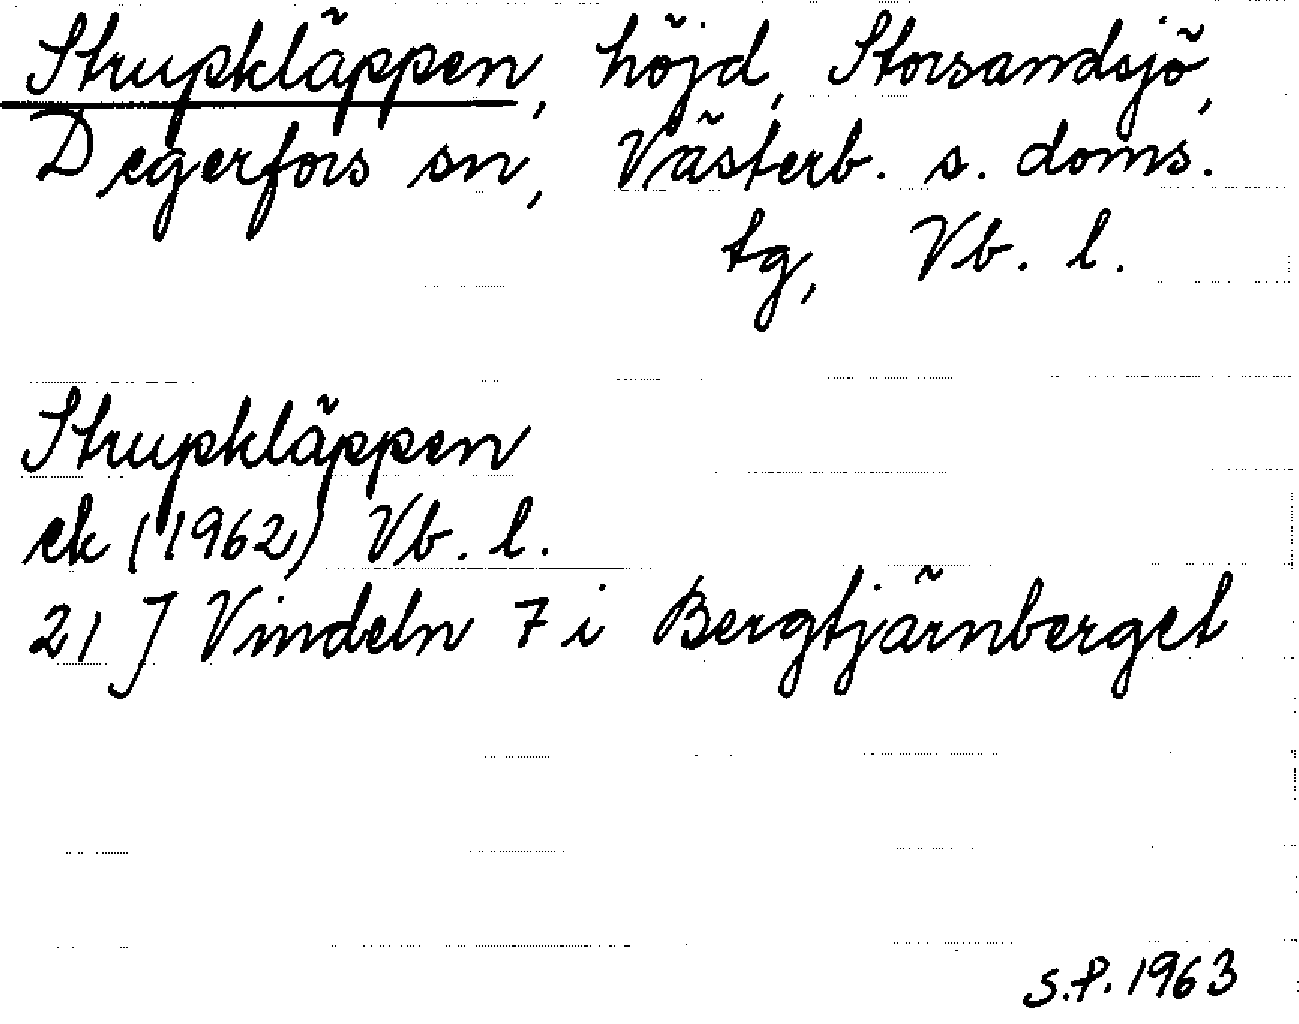 Strupkläppen, höjd, Storsandsjö,
Degerfors sn, Västerb. s. doms.
tg, Vb. l.
Strupkläppen
ek (1962) Vb. l.
21 J Vindeln 7 i Bergtjärnberget
S.P. 1963